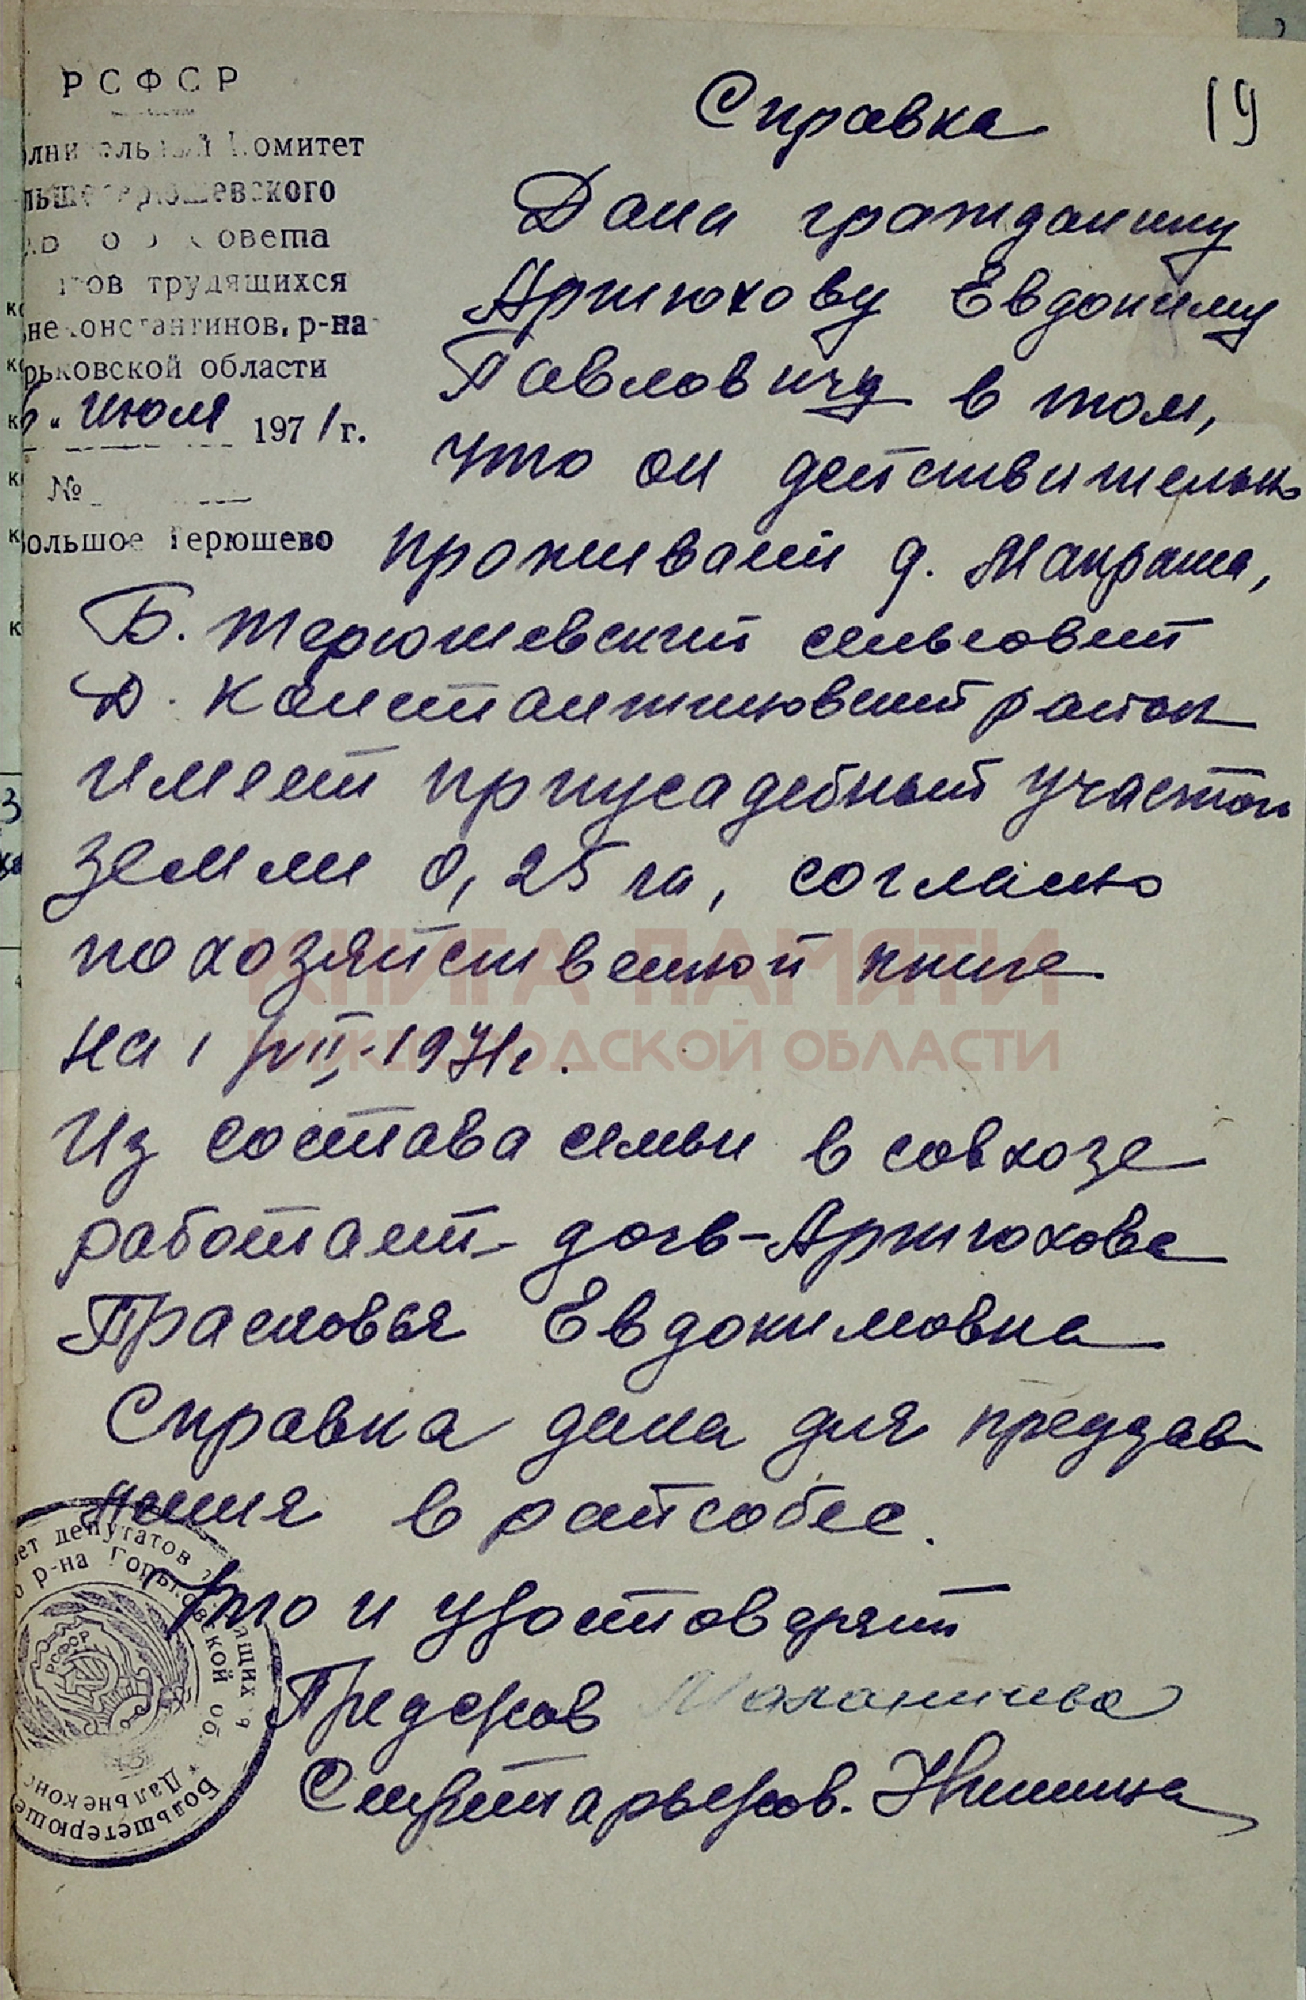 РСФСР
Комитет
овета
тов трудящихся
неконстантинов. р-на
рьковской области
июля 1971 г.
№
Большое Терюшево
19
Справка
Дана гражданину
Артюхову Евдокиму
Павловичу в том,
что он действительно
проживает д. Макраша,
Б. Терюшевский сельсовет
Д. Константиновский район
имеет приусадебный участок
земли 0,25 га, согласно
похозяйственной книге
на 1/VII-1971г.
Из состава семьи в совхозе
работает дочь-Артюхова
Прасковья Евдокимовна
Справка дана для предъяв
ления в райсобес.
Что и удостоверяет
Предс/сов
Секретарь с/сов.
КНИГА ПАМЯТИ
НИЖЕГОРОДСКОЙ ОБЛАСТИ
ет депутатов
р-на Горьковской об
РСФСР
Большетерюше
Дальнеконс